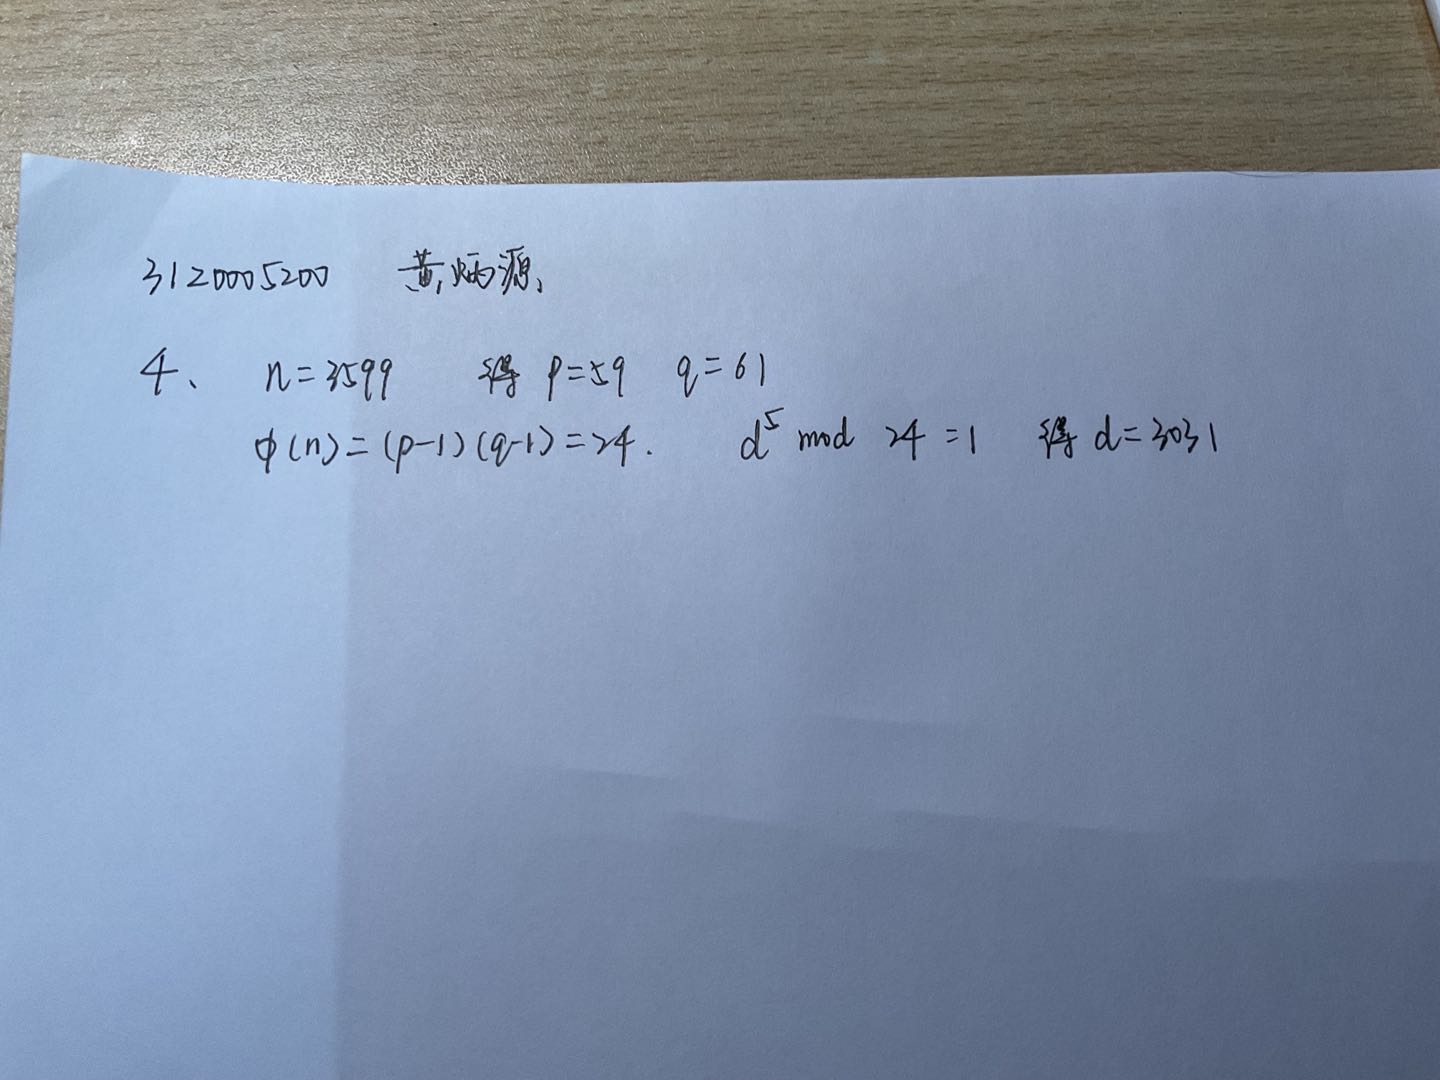 3120005200 黄炳源
4、 n=3599 得 p=59 q=61
φ(n)=(p-1)(q-1)=24. d⁵ mod 24=1 得 d=3031